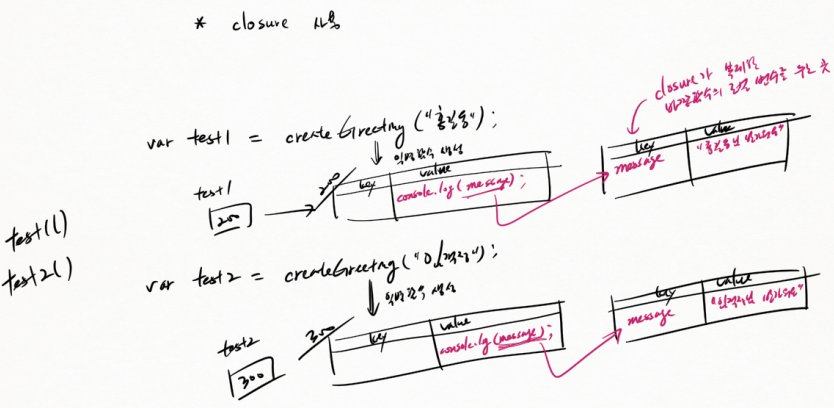 * closure 사용
closure가 복제한
바깥함수의 로컬 변수를 두는 곳
var test1 = createGreeting("홍길동");
익명함수 생성
test1
200
200
key value
console.log(message);
key value
message "홍길동님 반가워요"
test1()
test2()
var test2 = createGreeting("이꺽정");
익명함수 생성
test2
300
300
key value
console.log(message);
key value
message